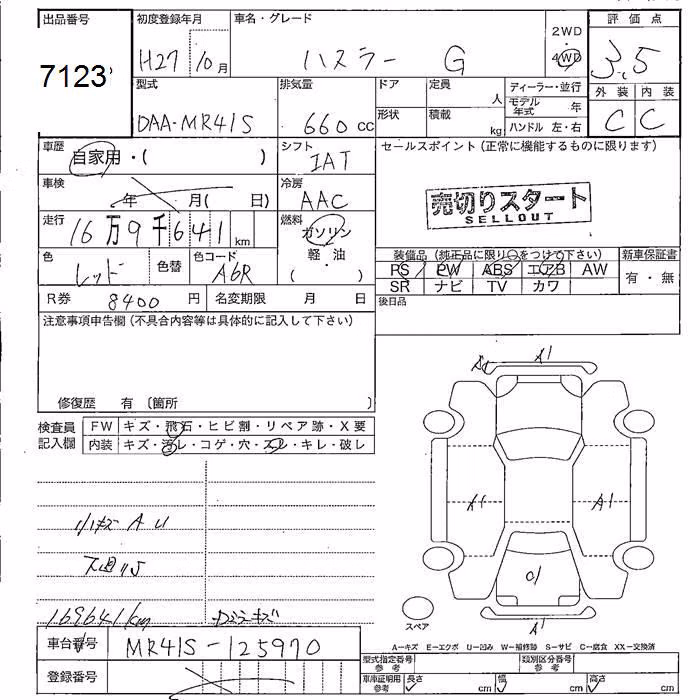 出品番号 初度登録年月 車名・グレード 2WD 評価点
7123 H27/10月 ハスラー G 4WD 3.5
型式 排気量 ドア 定員 人 ディーラー・並行 外装 内装
DAA-MR41S 660 cc 形状 積載 kg モデル年式 年 C C
ハンドル 左・右
車歴 自家用・( ) シフト IAT セールスポイント(正常に機能するものに限ります)
車検 年 月( 日) 冷房 AAC
売切りスタート
SELLOUT
走行 16万9千641km 燃料 ガソリン
軽・油
( )
色 レッド 色替 色コード A6R
装備品(純正品に限り○をつけて下さい) 新車保証書
PS PW ABS エアB AW 有・無
SR ナビ TV カワ
R券 8400円 名変期限 月 日 後日品
注意事項申告欄(不具合内容等は具体的に記入して下さい)
修復歴 有 〔箇所 〕
検査員記入欄 FW キズ・飛石・ヒビ割・リペア跡・X要
内装 キズ・汚レ・コゲ・穴・スレ・キレ・破レ
A1
A1 A1
小キズ A U
下廻りS
169641km
A1
スペア
A-キズ E-エクボ U-凹み W-補修跡 S-サビ C-腐食 XX-交換済
車台番号 MR41S-125970
型式指定番号 参考 類別区分番号 参考
登録番号 車庫証明用 参考 長さ cm 幅 cm 高さ cm